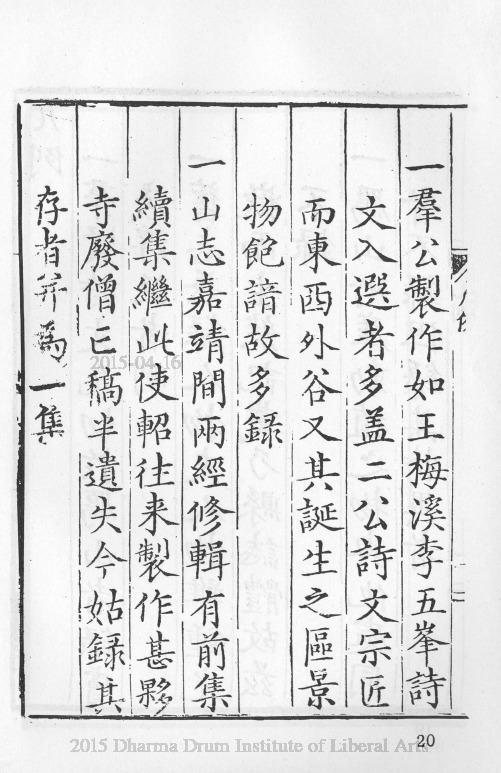 一羣公製作如王梅溪李五峯詩
文入選者多盖二公詩文宗匠
而東西外谷又其誕生之區景
物飽諳故多錄
一山志嘉靖間兩經修輯有前集
續集繼此使軺往来製作甚夥
寺廢僧亡稿半遺失今姑錄其
存者并為一集
2015-04-16
20
2015 Dharma Drum Institute of Liberal Arts